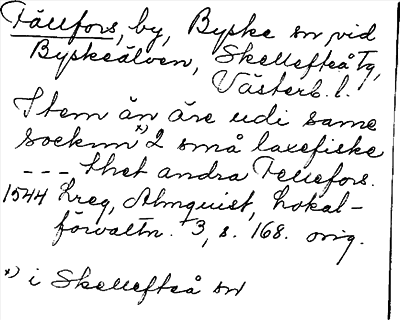 Fällfors, by, Byske sn vid
Byskeälven, Skellefteå tg,
Västerb. l.
Item än äre udi same
socknn x) 2 små laxefiske
--- thet andra Fellefors.
1544 hreg, Almquist, Lokal-
förvaltn. 3, s. 168. orig.
x) i Skellefteå sn